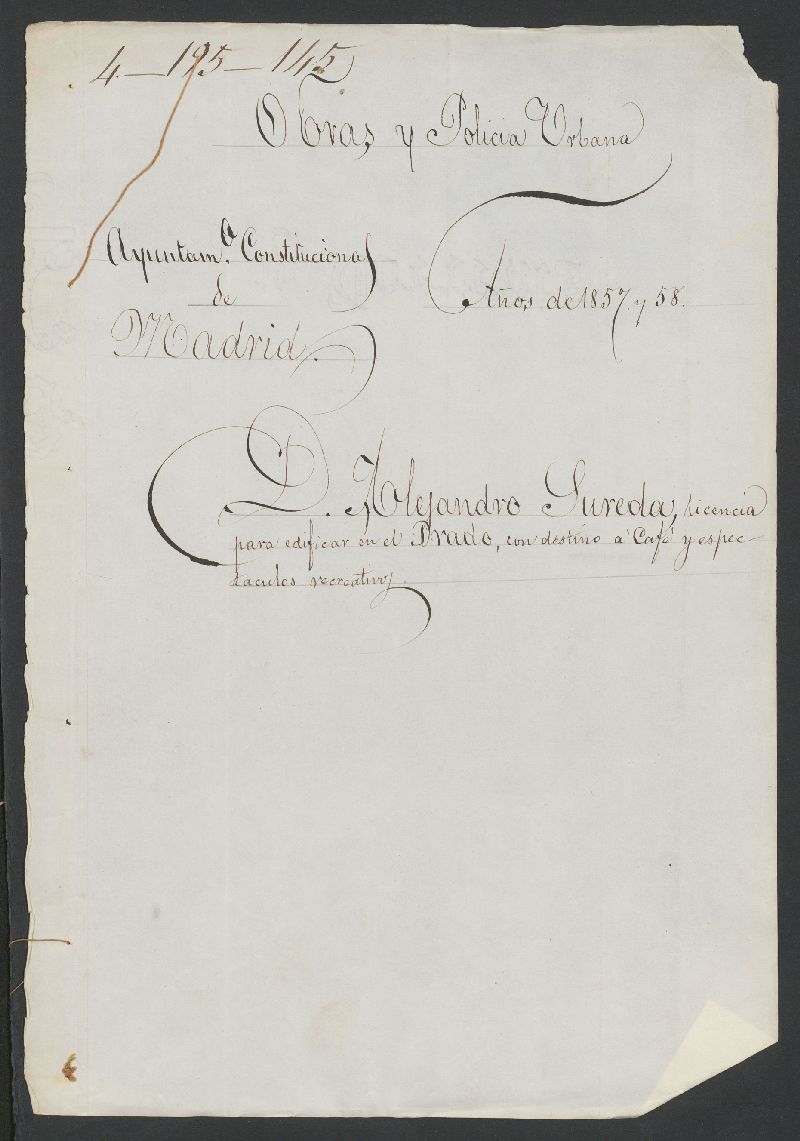 4-195-145
Obras y Policia Urbana
Ayuntam.º Constitucional
de
Madrid.
Años de 1857 y 58.
D. Alejandro Sureda, licencia
para edificar en el Prado, con destino a Café y espec-
táculos recreativos.